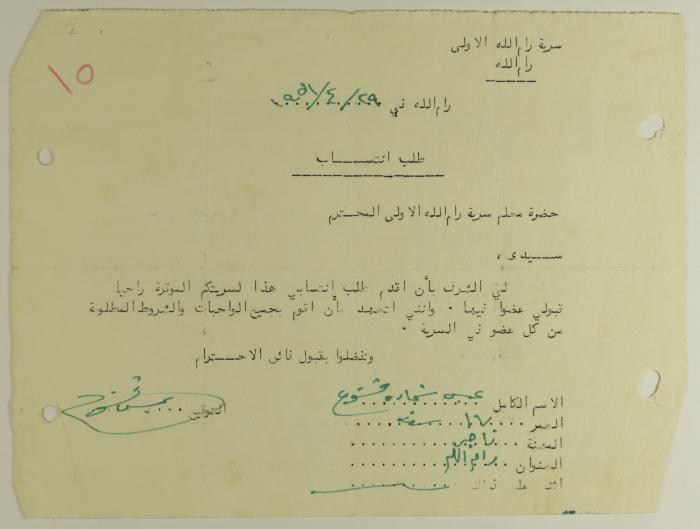 سرية رام الله الاولى
رام الله
١٥
رام الله في ٢٩/٤/١٩٥٦
طلب انتساب
حضرة معلم سرية رام الله الاولى المحترم
سيدى ،
لي الشرف بأن اقدم طلب إنتسابي هذا لسريتكم الموقرة راجيا
قبولي عضوا فيها . وانني اتعهد بأن اقوم بجميع الواجبات والشروط المطلوبة
من كل عضو في السرية .
وتفضلوا بقبول فائق الاحترام
الاسم الكامل عيسى شحاده
العمر سنه
المهنة تاجر
العنوان رام الله
التوقيع